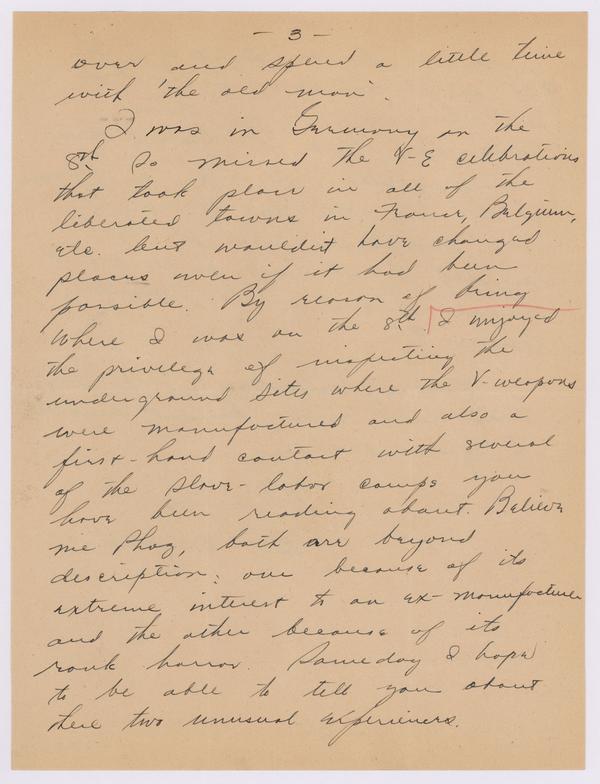 - 3 -
over and spend a little time
with 'the old man'.
I was in Germany on the
8th so missed the V-E celebrations
that took place in all of the
liberated towns in France, Belgium,
etc. but wouldn't have changed
places even if it had been
possible. By reason of being
where I was on the 8th I enjoyed
the privilege of inspecting the
underground sites where the V-weapons
were manufactured and also a
first-hand contact with several
of the slave-labor camps you
have been reading about. Believe
me Phog, both are beyond
description; one because of its
extreme interest to an ex-manufacturer
and the other because of its
rank horror. Someday I hope
to be able to tell you about
these two unusual experiences.